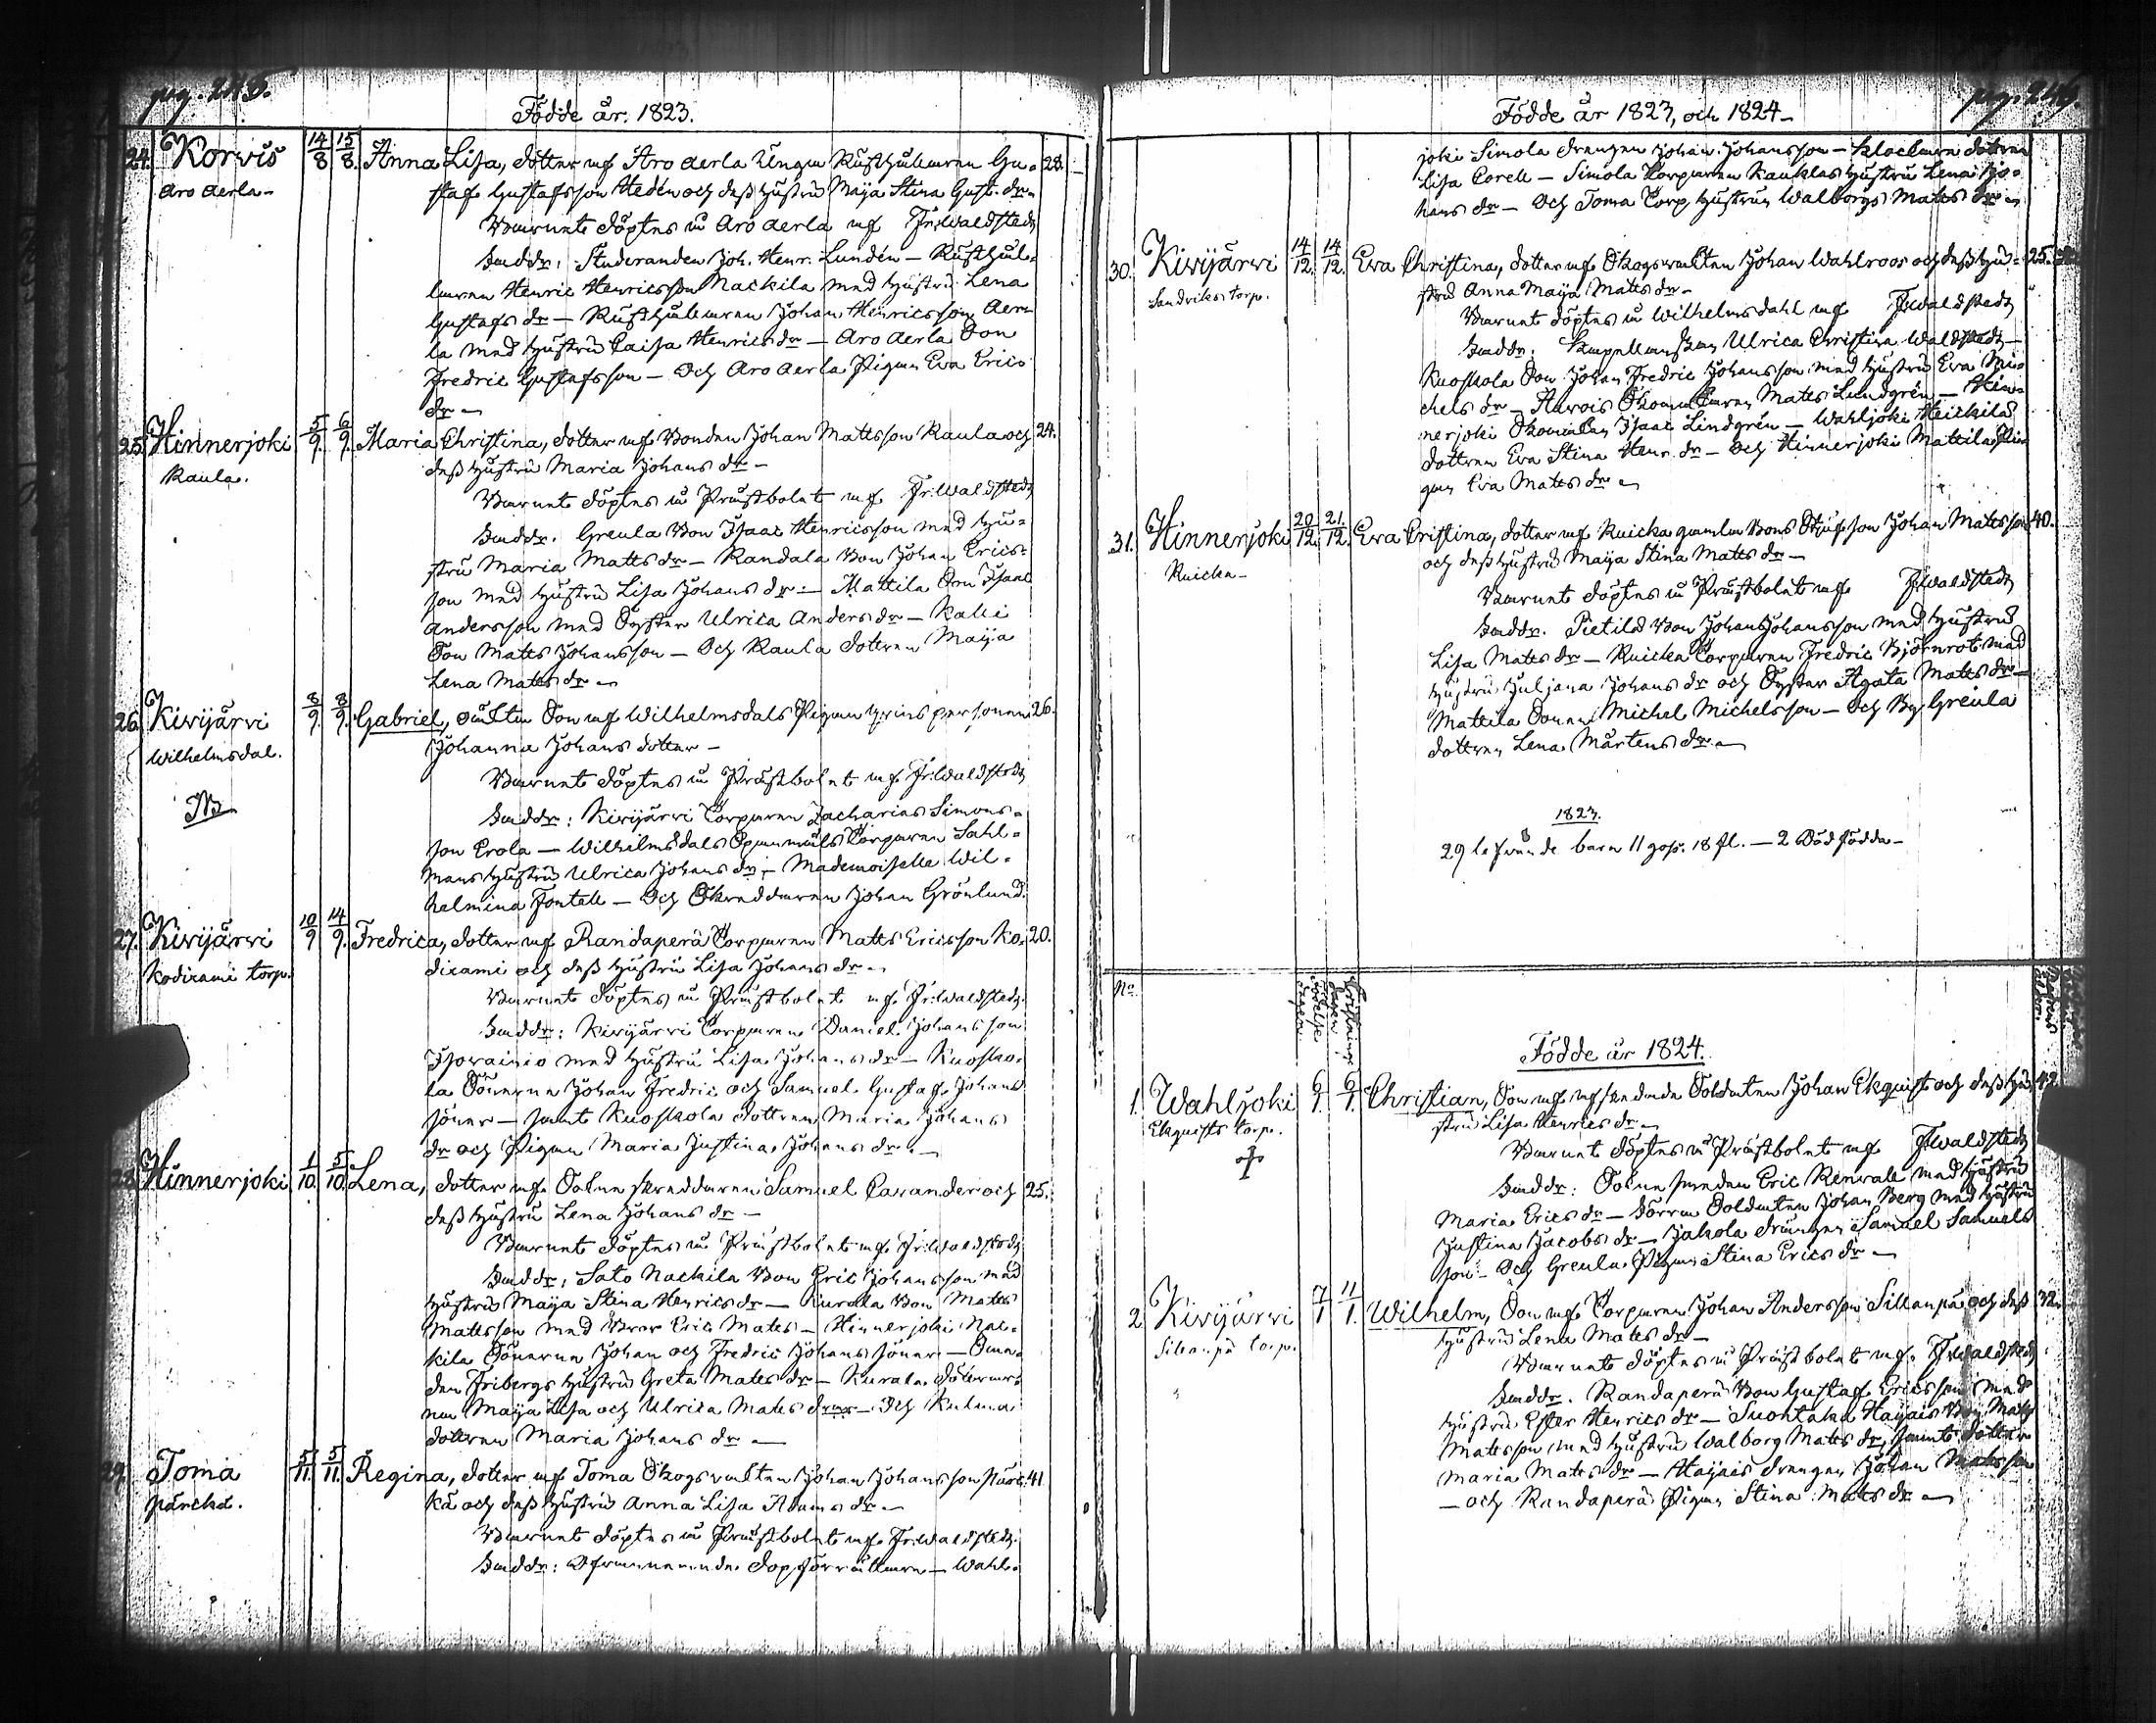 pag. 245.
Födde år. 1823.
24. Korwis 14/8 15/8. Anna Lisa, dotter af Aro Aerla Unga Rusthållaren Gu- 28.
Aro Aerla- staf Gustafsson Hedén och dess hustru Maja Stina Gust. dr.
Barnet döptes i Aro Aerla af Fr. Waldstedt
Faddr: Studeranden Joh. Henr. Lundén - Rusthål-
laren Henric Henricsson Nackila med hustru Lena
Gustafs dr - Rusthållaren Johan Henricsson Aer-
la med hustru Caisa Henrics dr - Aro Aerla Son
Fredric Gustafsson - Och Aro Aerla Pigan Eva Erics
dr -
25. Hinnerjoki 5/9. 6/9. Maria Christina, dotter af Bonden Johan Mattsson Raula och 24.
Raula. dess hustru Maria Johans dr -
Barnet döptes i Prästbolet af Fr. Waldstedt
Faddr. Greula Bon Isaac Henricsson med hu-
stru Maria Matts dr - Randala Bon Johan Erics-
son med hustru Lisa Johans dr - Mattila Son Isaac
Andersson med Syster Ulrica Anders dr - Kalli
Son Matts Johansson - Och Raula dottren Maija
Lena Matts dr -
26. Kivijärvi 8/9. 8/9. Gabriel, oäkta Son af Wilhelmsdals Pigan 26.
Wilhelmsdal. Johanna Johans dotter -
Barnet döptes i Prästbolet af Fr. Waldstedt
NB Faddr: Kivijärvi Torparen Zacharias Simons-
son Erola - Wilhelmsdals Torparen Sahl-
mans hustru Ulrica Johans dr - Mademoiselle Wil-
helmina Fontell - Och Skreddaren Johan Grönlund.
27. Kivijärvi 10/9 14/9. Fredrica, dotter af Randaperä Torparen Matts Ericsson Ko- 20.
Kodixami torp. dixami och dess hustru Lisa Johans dr -
Barnet döptes i Prästbolet af Fr. Waldstedt.
Faddr: Kivijärvi Torparen Daniel Johansson
Isorainio med hustru Lisa Johans dr - Kuosko-
la Sönerne Johan Fredric och Samuel Gustaf Johans
söner - samt Kuoskola dottren Maria Johans
dr och Pigan Maria Justina Johans dr -
28. Hinnerjoki 1/10. 5/10. Lena, dotter af Sokne skreddaren Samuel Caxander och 25.
dess hustru Lena Johans dr -
Barnet döptes i Prästbolet af Fr. Waldstedt
Faddr: Sato Nackila Bon Eric Johansson med
hustru Maija Stina Henrics dr - Kurala Bon Matts
Mattsson med Bror Eric Matts - Hinnerjoki Nac-
kila Sönerne Johan och Fredric Johans söner - Sme-
den Fribergs hustru Greta Matts dr - Kurala döttrar-
ne Maija Lisa och Ulrica Matts drar - Och Kulma
dottren Maria Johans dr -
29. Toma 5/11. 5/11. Regina, dotter af Toma Skogsvakten Johan Johansson Pärk- 41
Pärckä. kä och dess hustru Anna Lisa Adams dr -
Barnet döptes i Prästbolet af Fr. Waldstedt.
Faddr: Ofvannemnde Dopförrättare - Wahl-
pag. 246.
Födde år 1823, och 1824-
joki Simola Drengen Johan Johansson - Klockare dottren
Lisa Corell - Simola Torparen Kauklas hustru Lena Jo-
hans dr - Och Toma Torp hustrun Walborgs Matts dr -
30. Kivijärvi 14/12. 14/12. Eva Christina, dotter af Skogsvakten Johan Wahlroos och dess hu- 25.
Sandviks torp. stru Anna Maija Matts dr -
Barnet döptes i Wilhelmsdahl af Fr Waldstedt
Faddr: Kapellanskan Ulrica Christina Waldstedt -
Kuoskola Son Johan Fredric Johansson med hustru Eva Mi-
chels dr - Mats Lundgrén - Hin-
nerjoki Isaac Lindgrén - Wahljoki Heickilä
dottren Eva Stina Henr. dr - Och Hinnerjoki Mattila Pi-
gan Eva Matts dr -
31. Hinnerjoki 20/12. 21./12. Eva Cristina, dotter af Ruicka gamla Bons Styfson Johan Mattsson 40.
Ruicka- och dess hustru Maija Stina Matts dr -
Barnet döptes i Prästbolet af Fr Waldstedt
Faddr. Pietilä Bon Johan Johansson med hustru
Lisa Matts dr - Ruicka Torparen Fredric Björnrot med
hustru Juljana Johans dr och Syster Agata Matts dr -
Mattila Sonen Michel Michelsson - Och By Greula
dottren Lena Mårtens dr -
1823.
29 lefvande barn 11 gos. 18 fl. - 2 Död födda -
No.
Födde år 1824.
1. Wahljoki 6/1. 6/1. Christian, Son af afskedade Soldaten Johan Ekquist och dess hu- 42
Ekquists torp. stru Lisa Henrics dr -
Barnet döptes i Prästbolet af Fr Waldstedt
Faddr: Sokne smeden Eric Renvall med hustru
Maria Erics dr - Soldaten Johan Berg med hustru
Justina Jacobs dr - Jakola Drängen Samuel Samuels
son - Och Greula Pigan Stina Erics dr -
2 Kivijärvi 7/1 11/1. Wilhelm, Son af Torparen Johan Andersson Sillanpä och dess 32.
Silbanpä torp. hustru Lena Matts dr -
Barnet döptes i Prästbolet af Fr Waldstedt
Faddr. Randaperä Bon Gustaf Ericsson med
hustru Ester Henrics dr - Suontaka Hayais Bon Matts
Mattsson med hustru Walborg Matts dr, samt dotter
Maria Matts dr - Hayais drengen Johan Mattsson
- och Randaperä Pigan Stina Matts dr -